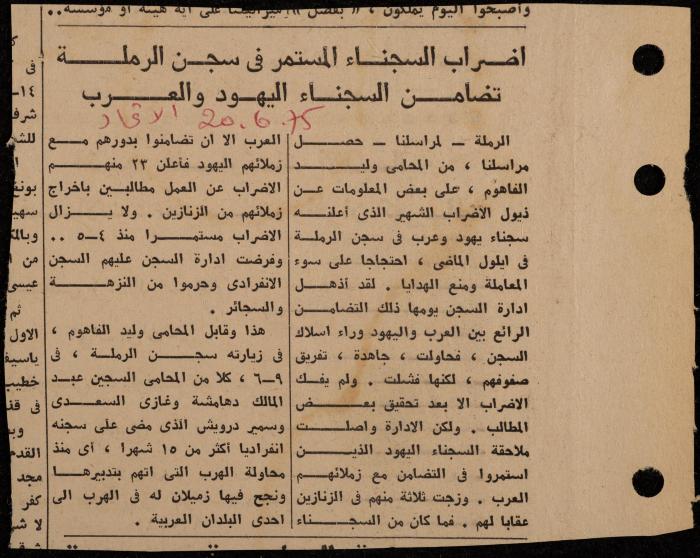 وأصبحوا اليوم يملكون ، « بفضل » على أية هيئة او مؤسسة ..
اضراب السجناء المستمر فى سجن الرملة
تضامن السجناء اليهود والعرب
الاتحاد 20.6.75
الرملة ـ لمراسلنا ـ حصل
مراسلنا ، من المحامى وليد
الفاهوم ، على بعض المعلومات عن
ذيول الأضراب الشهير الذى أعلنه
سجناء يهود وعرب فى سجن الرملة
فى ايلول الماضى ، احتجاجا على سوء
المعاملة ومنع الهدايا . لقد أذهل
ادارة السجن يومها ذلك التضامن
الرائع بين العرب واليهود وراء اسلاك
السجن ، فحاولت ، جاهدة ، تفريق
صفوفهم ، لكنها فشلت . ولم يفك
الاضراب الا بعد تحقيق بعض
المطالب . ولكن الادارة واصلت
ملاحقة السجناء اليهود الذين
استمروا فى التضامن مع زملائهم
العرب . وزجت ثلاثة منهم فى الزنازين
عقابا لهم . فما كان من السجناء
العرب الا ان تضامنوا بدورهم مع
زملائهم اليهود فأعلن ٢٣ منهم
الاضراب عن العمل مطالبين باخراج
زملائهم من الزنازين . ولا يزال
الاضراب مستمرا منذ ٤ـ٥ ..
وفرضت ادارة السجن عليهم السجن
الانفرادى وحرموا من النزهة
والسجائر .
هذا وقابل المحامى وليد الفاهوم ،
فى زيارته سجن الرملة ، فى
٩ـ٦ ، كلا من المحامى السجين عبد
المالك دهامشة وغازى السعدى
وسمير درويش الذى مضى على سجنه
انفراديا أكثر من ١٥ شهرا ، أى منذ
محاولة الهرب التى اتهم بتدبيرها
ونجح فيها زميلان له فى الهرب الى
احدى البلدان العربية .
فى
١٤ـ
شرف
للشه
بونف
سهي
وبالك
من ا
عيسى
ثم
الاول
ياسيف
خطيب
فى قن
وبـ
القدم
مجد
كفر
لا شر